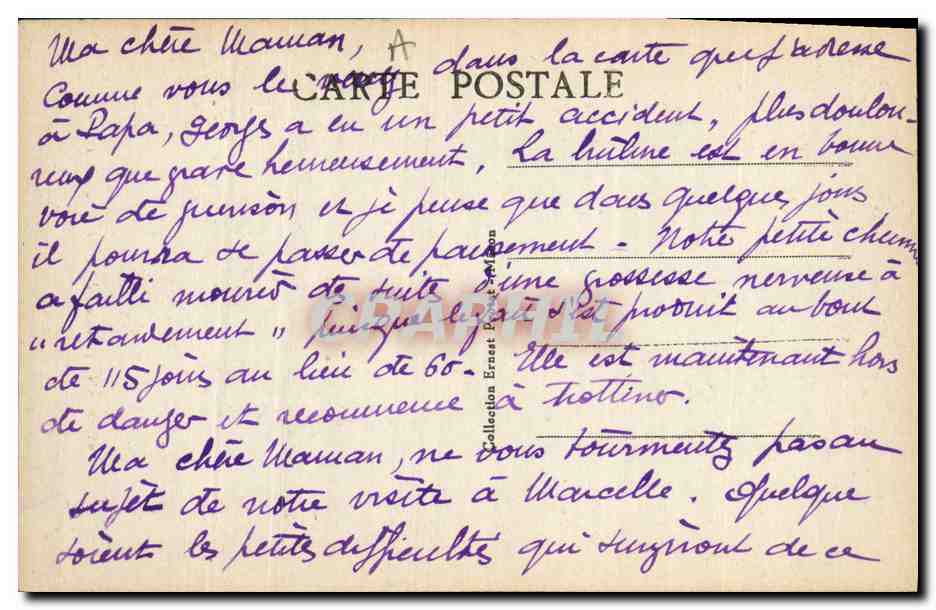 Ma chère Maman, A
CARTE POSTALE
Comme vous le verrez dans la carte que j'adresse
à Papa, Georges a eu un petit accident, plus doulou-
reux que grave heureusement. La brûlure est en bonne
voie de guérison et je pense que dans quelques jours
il pourra se passer de pansement - Notre petite chienne
a failli mourir de suite d'une grossesse nerveuse à
"retardement" puisque le fait s'est produit au bout
de 115 jours au lieu de 60 - Elle est maintenant hors
de danger et recommence à trottiner.
Ma chère Maman, ne vous tourmentez pas au
sujet de notre visite à Marcelle. Quelque
soient les petites difficultés qui surgiront de ce
Collection Ernest
CPAPHIL